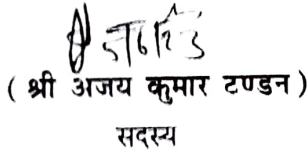 ( श्री अजय कुमार टण्डन )
सदस्य